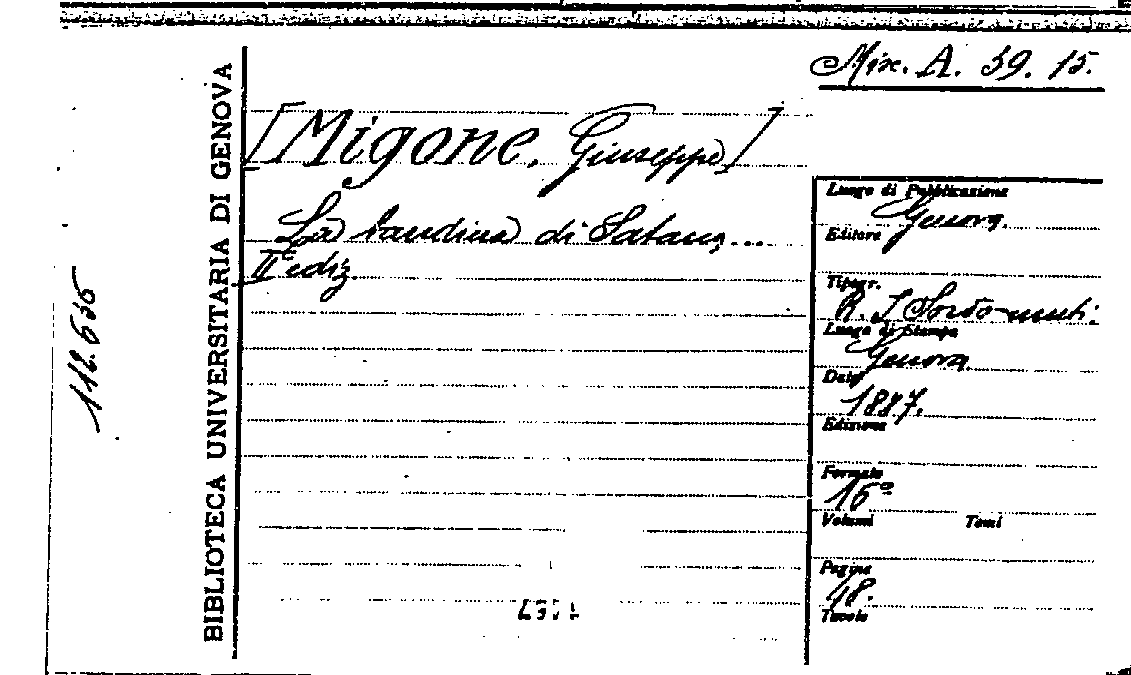 Misc. A. 39. 15.
[Migone, Giuseppe]
La
di Satana...
IIª ediz.
Luogo di Pubblicazione
Genova.
Editore
Tipogr.
R. I. Sordo-muti.
Luogo di Stampa
Genova
Data
1887.
Edizione
Formato
16º
Volumi Tomi
Pagine
48.
Tavole
BIBLIOTECA UNIVERSITARIA DI GENOVA
112.635